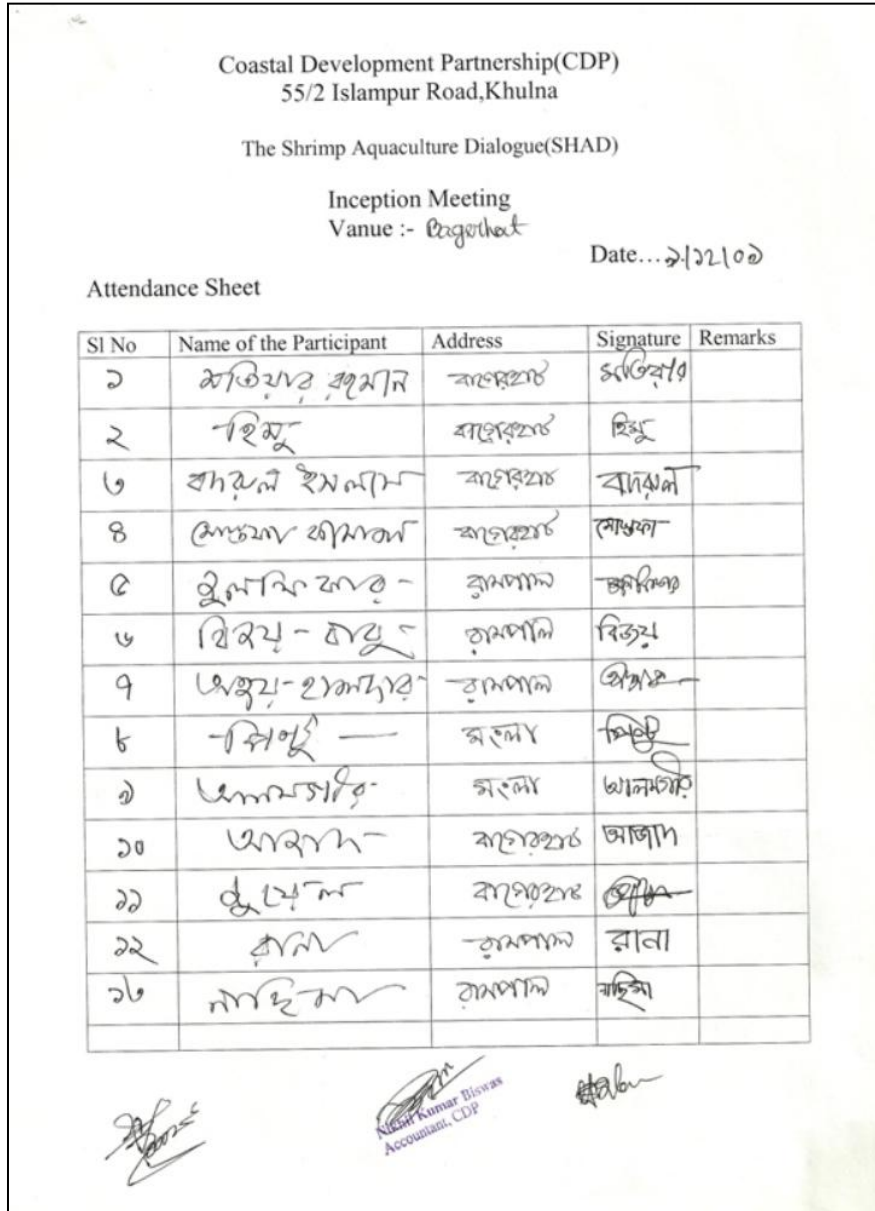 Coastal Development Partnership(CDP)
55/2 Islampur Road,Khulna
The Shrimp Aquaculture Dialogue(SHAD)
Inception Meeting
Vanue :- Bagerhat
Date...৯/১২/০৯
Attendance Sheet
Sl No Name of the Participant Address Signature Remarks
১ মতিয়ার রহমান বাগেরহাট মতিয়ার
২ হিমু বাগেরহাট হিমু
৩ বদরুল ইসলাম বাগেরহাট বদরুল
৪ মোস্তফা কামাল বাগেরহাট মোস্তফা
৫ জুলফিকার রামপাল
৬ বিজয় - বাবু রামপাল বিজয়
৭ অজয় - হালদার রামপাল
৮ মংলা
৯ আলমগীর মংলা আলমগীর
১০ আজাদ বাগেরহাট আজাদ
১১ জুয়েল বাগেরহাট
১২ রানা রামপাল রানা
১৩ নাছিমা রামপাল নাছিমা
Nikhil Kumar Biswas
Accountant, CDP